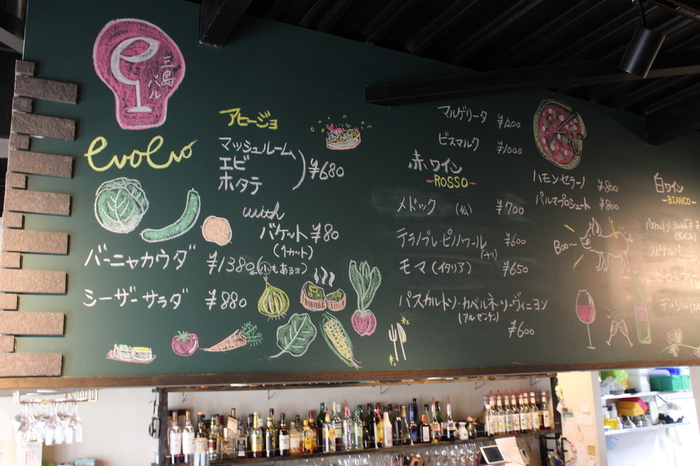 三島バル
evoevo
バーニャカウダ ¥1380 (小もあるヨ)
シーザーサラダ ¥880
アヒージョ
マッシュルーム
エビ
ホタテ
¥680
with
バケット ¥80
(1カット)
マルゲリータ ¥1200
ビスマルク ¥1000
赤ワイン
-ROSSO-
メドック (仏) ¥700
テラノブレ・ピノノワール (チリ) ¥600
モマ (イタリア) ¥650
パスカルトソ・カベルネ・ソーヴィニヨン
(アルゼンチン)
¥600
ハモンセラーノ ¥800
パルマプロシュート ¥800
Boo~
白ワイン
-BIANCO-